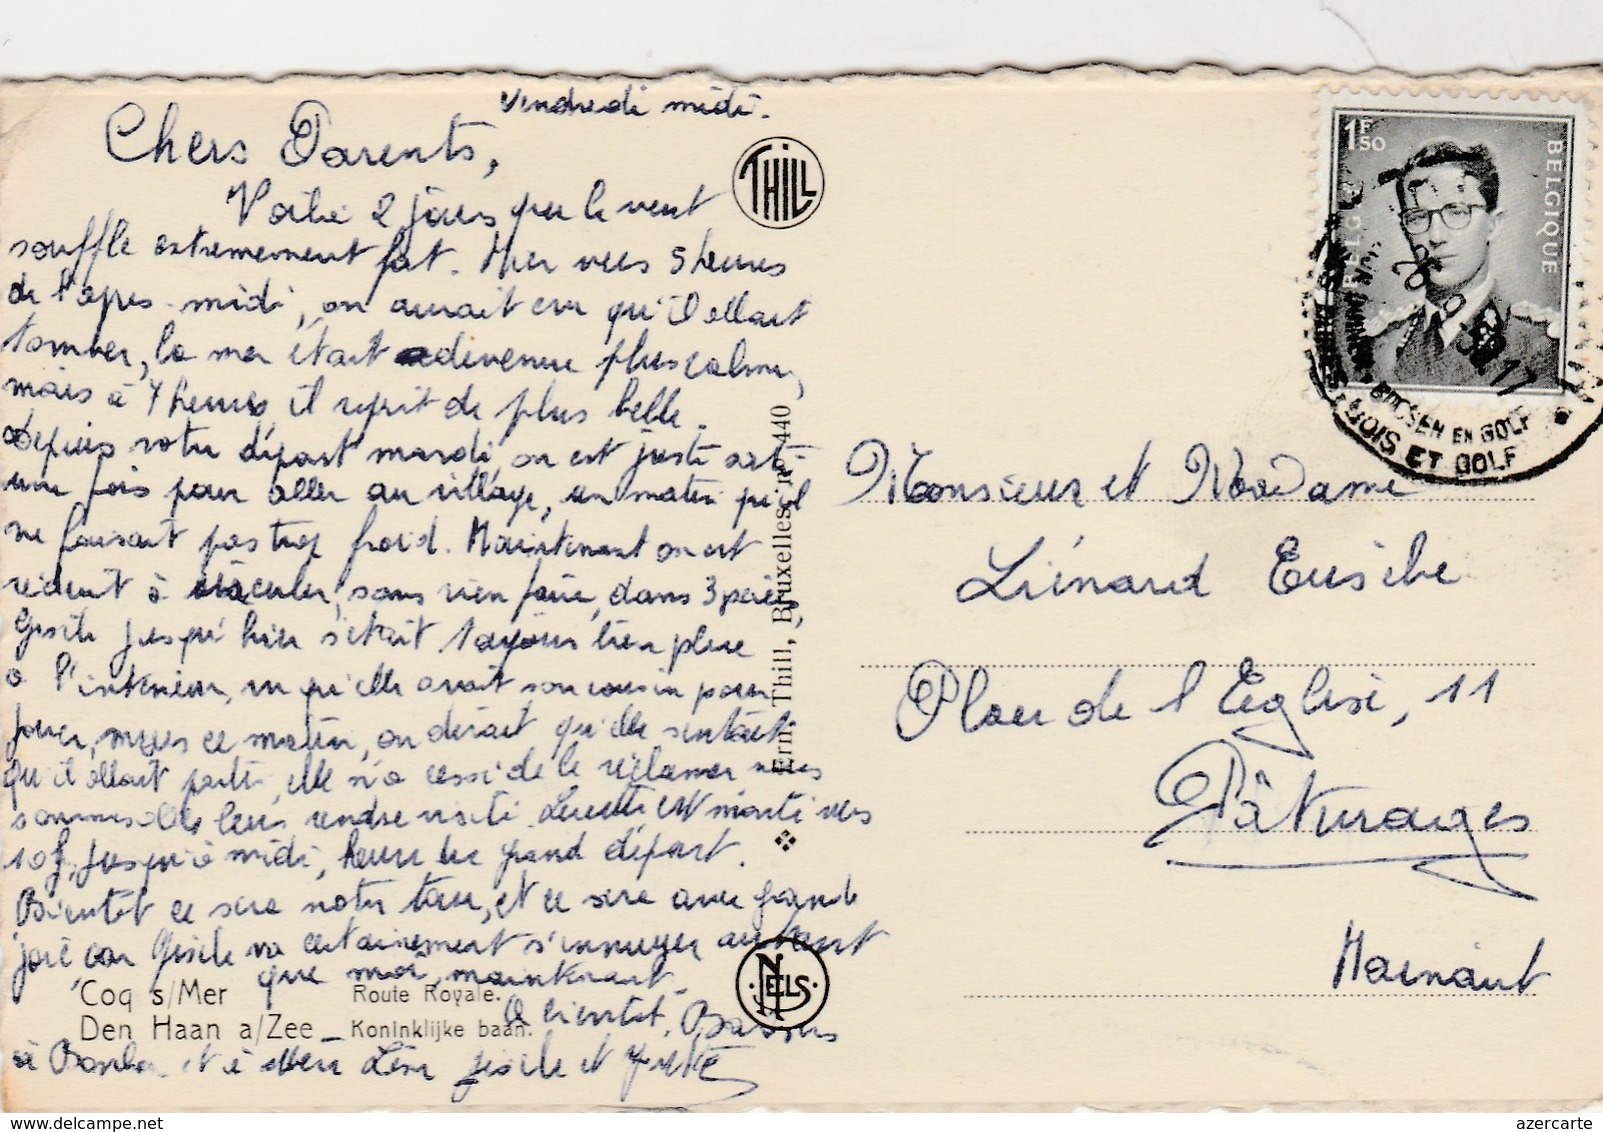 Vendredi midi.
Chers Parents,
Voilà 2 jours que le vent
souffle extrêmement fort. Hier vers 5 heures
de l'après-midi, on aurait cru qu'il allait
tomber, la mer était devenue plus calme,
mais à 7 heures, il reprit de plus belle.
Depuis notre départ mardi, on est juste sorti
une fois pour aller au village, un matin qu'il
ne faisait pas trop froid. Maintenant on est
réduit à sans rien faire, dans 3 pièces,
Gisèle jusqu'hier s'était toujours bien plue
à l'intérieur, vu qu'elle avait son cousin pour
jouer, mais ce matin, on dirait qu'elle sentait
qu'il allait partir, elle n'a cessé de le réclamer nous
sommes allés leurs rendre visite. est vers
10h, jusqu'à midi, heure du grand départ.
Bientôt ce sera notre tour, et ce sera avec grande
joie, car Gisèle va certainement s'ennuyer autant
que moi, maintenant.
A bientôt, Baisers
à et à Gisèle et
THILL
Ern. Thill, Bruxelles, n° 440
NELS
Coq s/Mer Route Royale.
Den Haan a/Zee — Koninklijke baan.
1F50
BELGIE BELGIQUE
BOSSEN EN GOLF
BOIS ET GOLF
Monsieur et Madame
Liénard Eusèbe
Place de l'Eglise, 11
Pâturages
Hainaut
azercarte